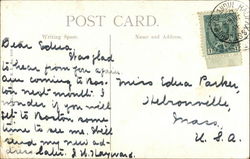 POST CARD.
Writing Space.
Name and Address.
Dear Edna,
Was glad
to hear from you again
am coming to Bos.
ton next month. I
wonder if you will
get to Boston some
time to see me. Will
send my new ad-
dress later. J. H. Hayward.
Miss Edna Parker,
Nelsonville,
Mass,
U. S. A.